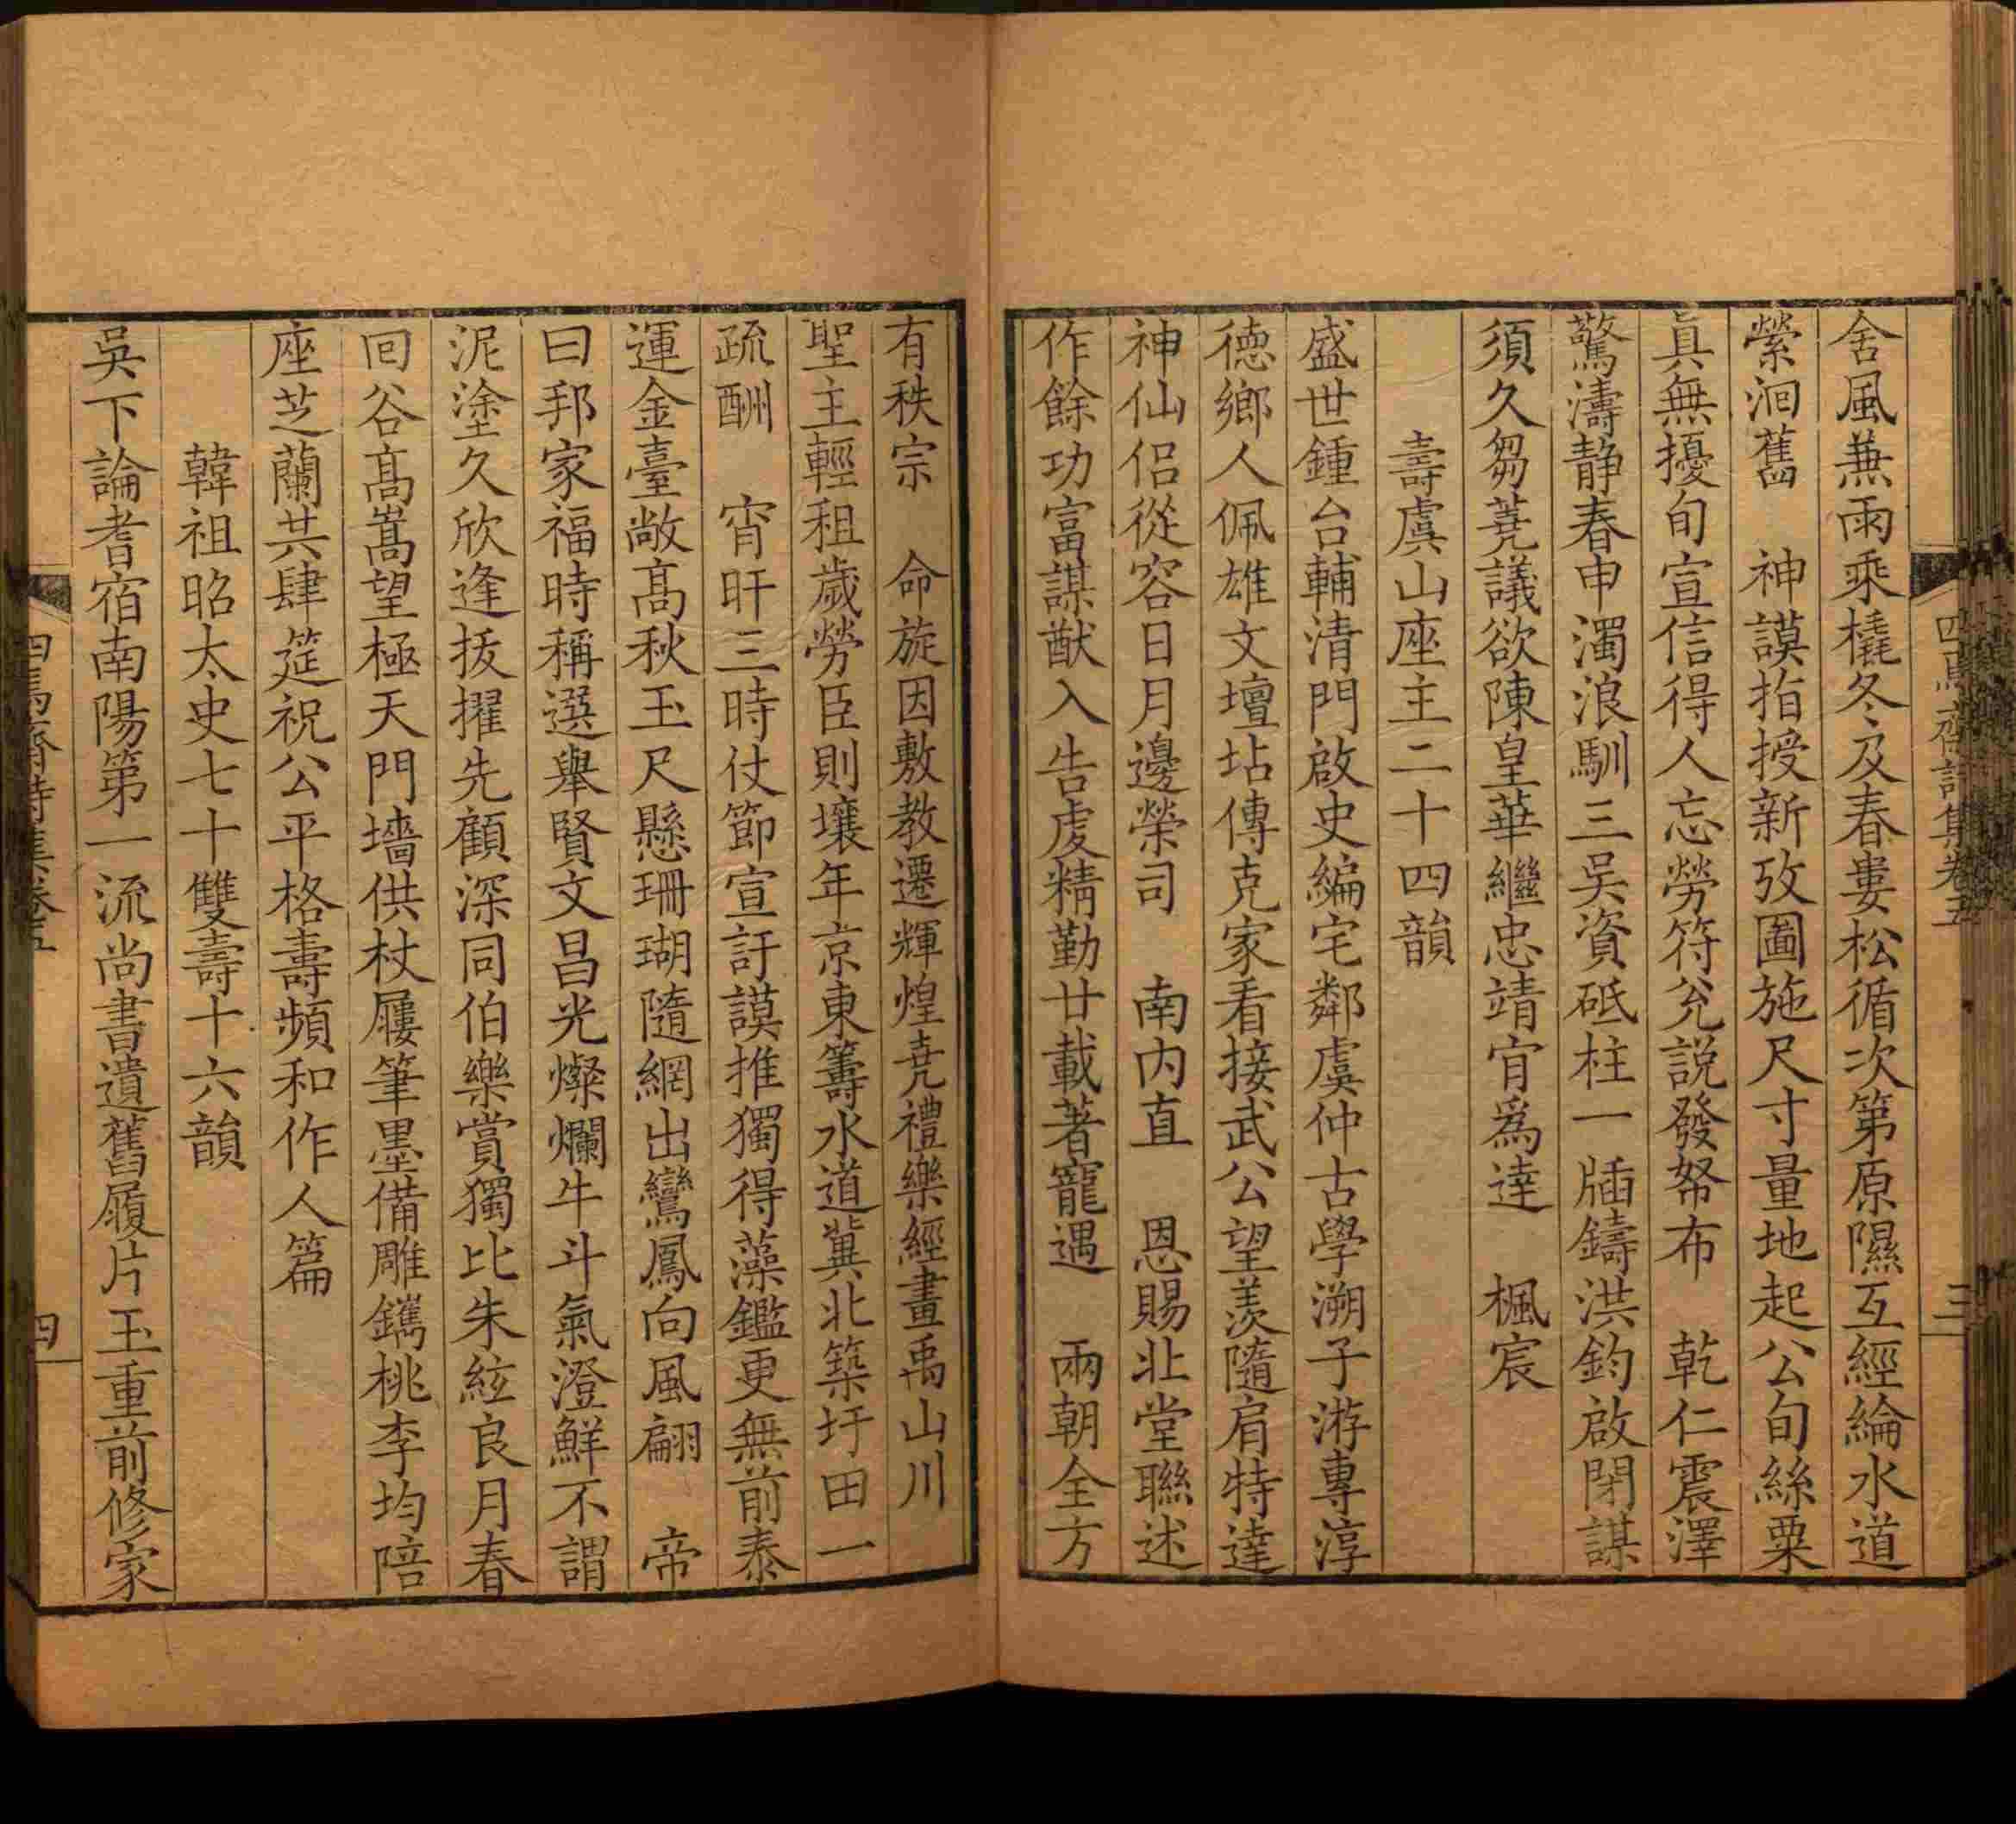 舍風兼雨乘橇冬及春婁松循次第原隰互經綸水道
縈洄舊　神謨指授新攷圖施尺寸量地起公旬絲粟
真無擾旬宣信得人忘勞符兊說發帑布　乾仁震澤
驚濤靜春申濁浪馴三吳資砥柱一牐鑄洪鈞啟閉謀
須久芻蕘議欲陳皇華繼忠靖宵爲達　楓宸
壽虞山座主二十四韻
盛世鍾台輔清門啟史編宅鄰虞仲古學溯子游專淳
德鄉人佩雄文壇坫傳克家看接武公望羨隨肩特達
神仙侣從容日月邊榮司　南内直　恩賜北堂聯述
作餘功富謀猷入告虔精勤廿載著寵遇　兩朝全方
有秩宗　命旋因敷教遷輝煌堯禮樂經畫禹山川
聖主輕租歲勞臣則壤年京東籌水道冀北築圩田一
疏酬　宵旰三時仗節宣訏謨推獨得藻鑑更無前泰
運金臺敞髙秋玉尺懸珊瑚隨網出鸞鳳向風翩　帝
曰邦家福時稱選舉賢文昌光燦爛牛斗氣澄鮮不謂
泥塗久欣逢拔擢先顧深同伯樂賞獨比朱絃良月春
回谷髙嵩望極天門墻供杖屨筆墨備雕鐫桃李均陪
座芝蘭共肆筵祝公平格壽頻和作人篇
韓祖昭太史七十雙壽十六韻
吳下論耆宿南陽第一流尚書遺舊履片玉重前修家
四焉齋詩集卷五
三
四焉齋詩集卷五
四